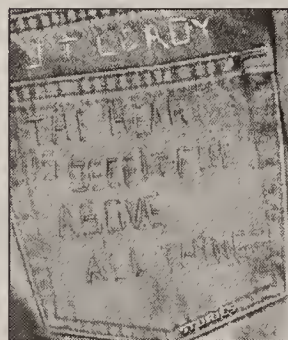 JT LEROY
THE HEART
IS DECEITFUL
ABOVE
ALL THINGS
stories